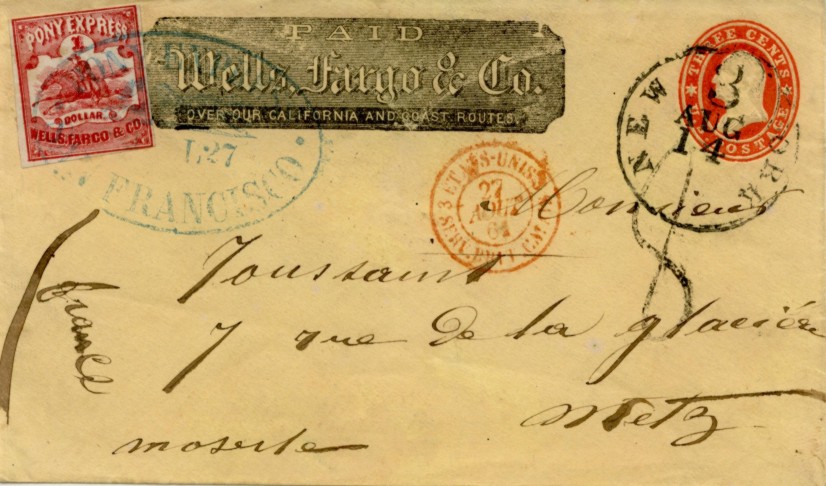 PONY EXPRESS
1
DOLLAR.
WELLS, FARGO & CO.
PAID
Wells, Fargo & Co.
OVER OUR CALIFORNIA AND COAST ROUTES.
THREE CENTS
POSTAGE
NEW YORK
3
AUG
14
L27
FRANCISCO
3 ETATS-UNIS
27
AOUT
61
Monsieur
Toussaint
7 rue de la glacière
Metz
moselle
France
8